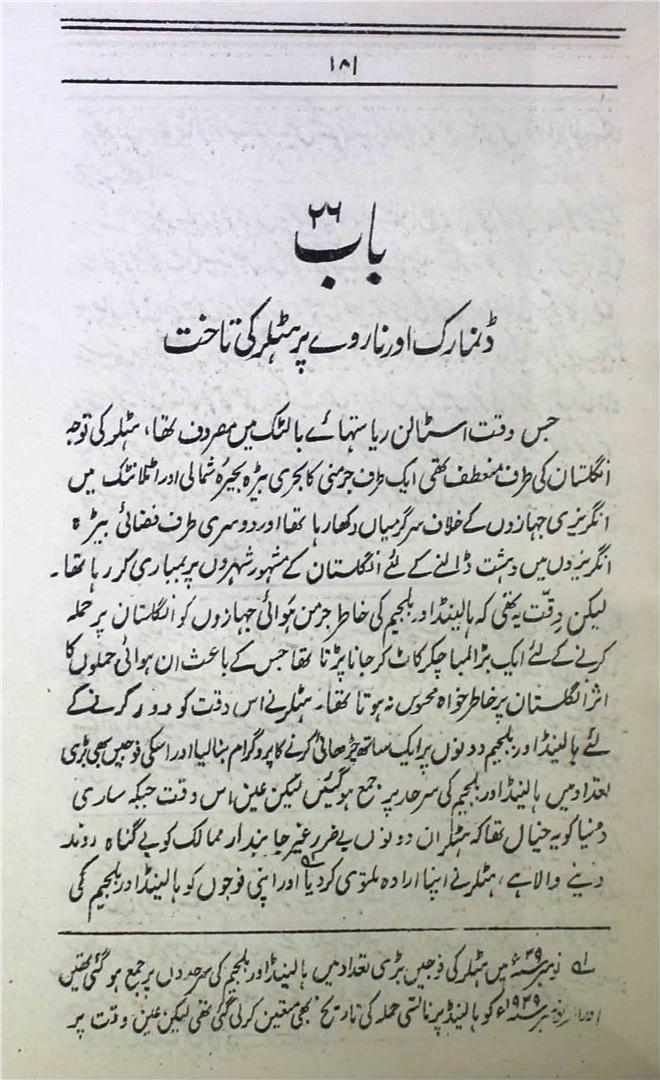 ۱۸۱
باب ۲۶
ڈنمارک اور ناروے پر ہٹلر کی تاخت
جس وقت اسٹالن ریاستہائے بالٹک میں مصروف تھا، ہٹلر کی توجہ
انگلستان کی طرف منعطف تھی ایک طرف جرمنی کا بحری بیڑہ بحیرۂ شمالی اور اٹلانٹک میں
انگریزی جہازوں کے خلاف سرگرمیاں دکھا رہا تھا اور دوسری طرف فضائی بیڑہ
انگریزوں میں دہشت ڈالنے کے لئے انگلستان کے مشہور شہروں پر بمباری کر رہا تھا۔
لیکن دِقّت یہ تھی کہ ہالینڈ اور بلجیم کی خاطر جرمن ہوائی جہازوں کو انگلستان پر حملہ
کرنے کے لئے ایک بڑا لمبا چکر کاٹ کر جانا پڑتا تھا جس کے باعث ان ہوائی حملوں کا
اثر انگلستان پر خاطر خواہ محسوس نہ ہوتا تھا۔ ہٹلر نے اس دقت کو دور کرنے کے
لئے ہالینڈ اور بلجیم دونوں پر ایک ساتھ چڑھائی کرنے کا پروگرام بنا لیا اور اسکی فوجیں بھی بڑی
تعداد میں ہالینڈ اور بلجیم کی سرحد پر جمع ہو گئیں لیکن عین اس وقت جبکہ ساری
دُنیا کو یہ خیال تھا کہ ہٹلر ان دونوں بے ضرر غیر جانبدار ممالک کو بے گناہ روند
دینے والا ہے، ہٹلر نے اپنا ارادہ ملتوی کر دیا لہ اور اپنی فوجوں کو ہالینڈ اور بلجیم کی
لہ نومبر ۳۹ء میں ہٹلر کی فوجیں بڑی تعداد میں ہالینڈ اور بلجیم کی سرحدوں پر جمع ہو گئی تھیں
اور نومبر ۱۹۳۹ء کو ہالینڈ پر حملہ کی تاریخ بھی متعین کر لی گئی تھی لیکن عین وقت پر